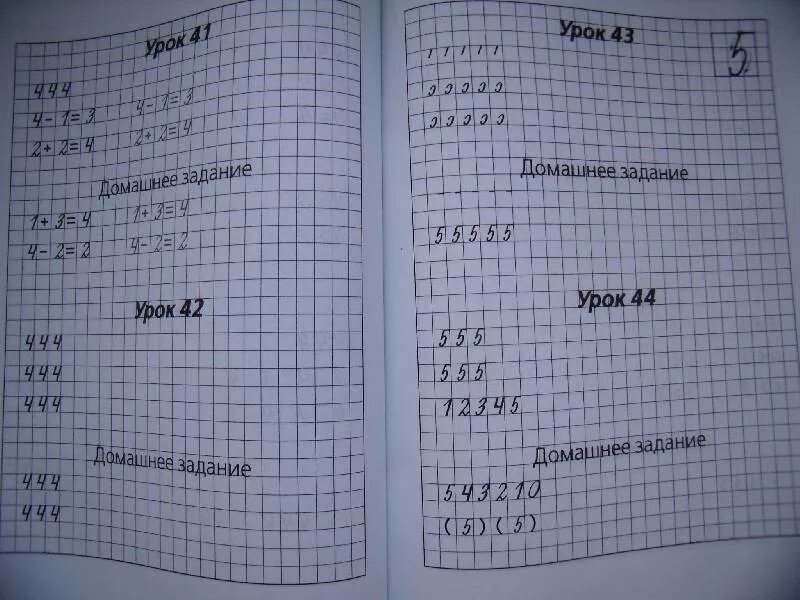 Урок 41
4 4 4
4 - 1 = 3 4 - 1 = 3
2 + 2 = 4 2 + 2 = 4
Домашнее задание
1 + 3 = 4 1 + 3 = 4
4 - 2 = 2 4 - 2 = 2
Урок 42
4 4 4
4 4 4
4 4 4
Домашнее задание
4 4 4
4 4 4
Урок 43
5
Домашнее задание
5 5 5 5 5
Урок 44
5 5 5
5 5 5
1 2 3 4 5
Домашнее задание
5 4 3 2 1 0
( 5 ) ( 5 )